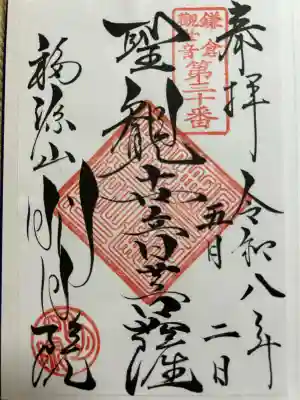 奉拝
令和八年
五月
二日
鎌倉
観世音
第三十番
聖観世音菩薩
福源山明月院